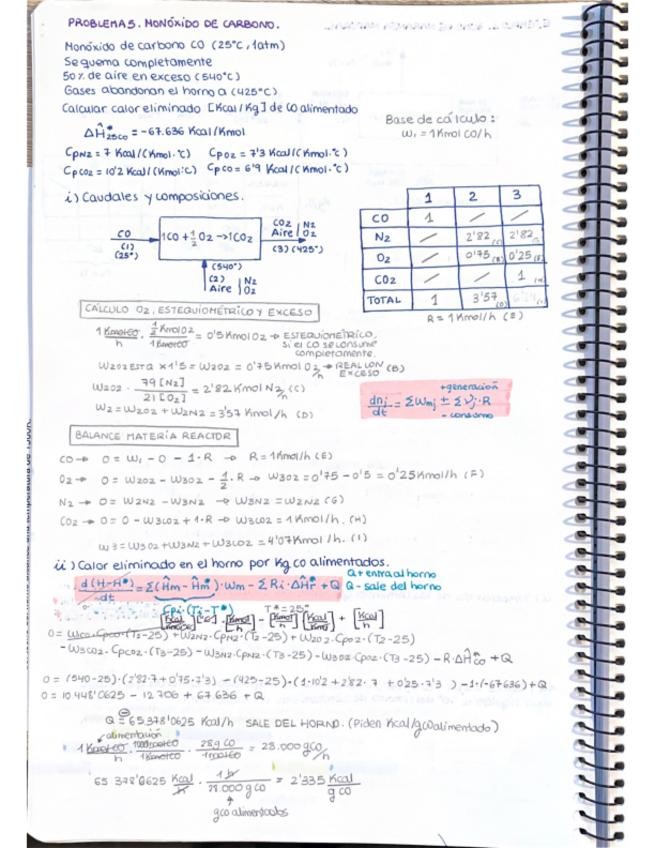 PROBLEMA 5. MONÓXIDO DE CARBONO.
Monóxido de carbono CO (25°C, 1atm)
Se quema completamente
50% de aire en exceso (540°C)
Gases abandonan el horno a (425°C)
Calcular calor eliminado [Kcal/Kg] de CO alimentado
Base de cálculo:
W₁ = 1 Kmol CO/h
ΔĤ°25CO = -67.636 Kcal/Kmol
CpN2 = 7 Kcal/(Kmol·°C) CpO2 = 7'3 Kcal/(Kmol·°C)
CpCO2 = 10'2 Kcal/(Kmol·°C) CpCO = 6'9 Kcal/(Kmol·°C)
i) Caudales y composiciones.
CO
(1)
(25°)
1CO + ½O2 → 1CO2
CO2 N2
Aire O2
(3) (425°)
(540°)
(2) N2
Aire O2
1 2 3
CO 1 / /
N2 / 2'82 (C) 2'82
O2 / 0'75 (B) 0'25 (F)
CO2 / / 1 (H)
TOTAL 1 3'57 (D)
R = 1 Kmol/h (E)
CÁLCULO O2, ESTEQUIOMÉTRICO Y EXCESO
1 Kmol CO/h · ½ Kmol O2/1 Kmol CO = 0'5 Kmol O2 → ESTEQUIOMÉTRICO,
si el CO se consume
completamente.
WO2O ESTQ x 1'5 = W2O2 = 0'75 Kmol O2/h → REAL CON EXCESO (B)
W2O2 · 79 [N2]/21 [O2] = 2'82 Kmol N2/h (C)
W2 = W2O2 + W2N2 = 3'57 Kmol/h (D)
+ generación
dnj/dt = ΣWmj ± Σνj · R
- consumo
BALANCE MATERIA REACTOR
CO → 0 = W1 - 0 - 1·R → R = 1 Kmol/h (E)
O2 → 0 = W2O2 - W3O2 - ½·R → W3O2 = 0'75 - 0'5 = 0'25 Kmol/h (F)
N2 → 0 = W2N2 - W3N2 → W3N2 = W2N2 (G)
CO2 → 0 = 0 - W3CO2 + 1·R → W3CO2 = 1 Kmol/h. (H)
W3 = W3O2 + W3N2 + W3CO2 = 4'07 Kmol/h. (I)
ii) Calor eliminado en el horno por Kg CO alimentados.
d(H-H°)/dt = Σ(Ĥm - Ĥ°m)·Wm - ΣRi·ΔĤ°r + Q
Q + entra al horno
Q - sale del horno
Cpi·(Ti-T°) T° = 25°
0 = WCO·CpCO·(T1-25) + W2N2·CpN2·(T2-25) + W2O2·CpO2·(T2-25)
-W3CO2·CpCO2·(T3-25) - W3N2·CpN2·(T3-25) - W3O2·CpO2·(T3-25) - R·ΔĤ°CO + Q
0 = (540-25)·(2'82·7 + 0'75·7'3) - (425-25)·(1·10'2 + 2'82·7 + 0'25·7'3) - 1·(-67636) + Q
0 = 10.448'0625 - 12.706 + 67.636 + Q
Q = 65.378'0625 Kcal/h SALE DEL HORNO. (Piden Kcal/gCO alimentado)
alimentación
1 Kmol CO/h · 1000 mol CO/1 Kmol CO · 28 g CO/1 mol CO = 28.000 g CO/h
65 378'0625 Kcal/h · 1 h/28.000 g CO = 2'335 Kcal/g CO
g CO alimentados